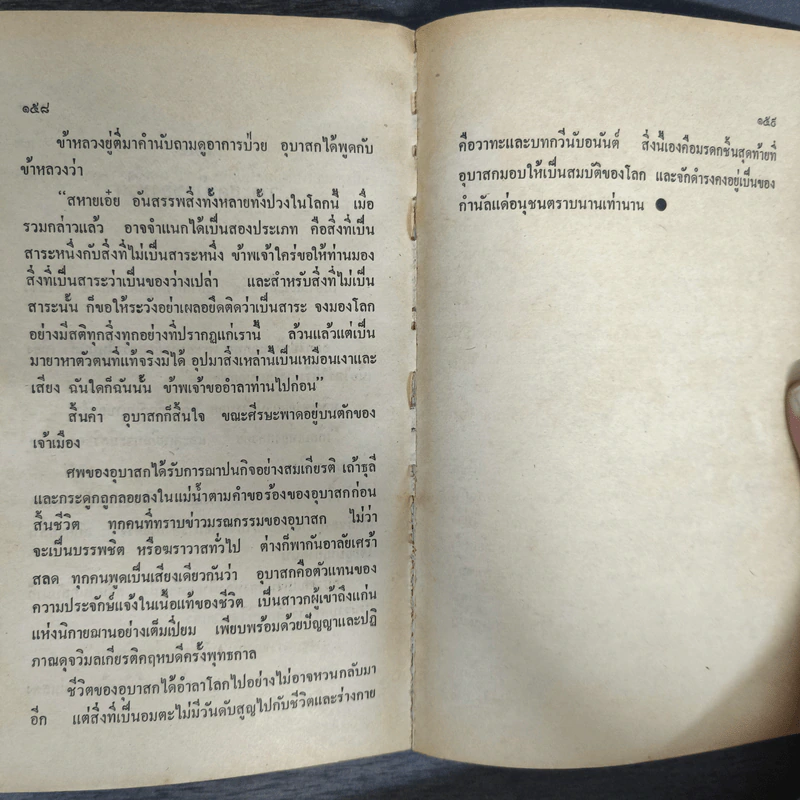 ๑๕๘
ข้าหลวงยู่ตี่มาคำนับถามดูอาการป่วย อุบาสกได้พูดกับ
ข้าหลวงว่า
“สหายเอ๋ย อันสรรพสิ่งทั้งหลายทั้งปวงในโลกนี้ เมื่อ
รวมกล่าวแล้ว อาจจำแนกได้เป็นสองประเภท คือสิ่งที่เป็น
สาระหนึ่งกับสิ่งที่ไม่เป็นสาระหนึ่ง ข้าพเจ้าใคร่ขอให้ท่านมอง
สิ่งที่เป็นสาระว่าเป็นของว่างเปล่า และสำหรับสิ่งที่ไม่เป็น
สาระนั้น ก็ขอให้ระวังอย่าเผลอยึดติดว่าเป็นสาระ จงมองโลก
อย่างมีสติทุกสิ่งทุกอย่างที่ปรากฏแก่เรานี้ ล้วนแล้วแต่เป็น
มายาหาตัวตนที่แท้จริงมิได้ อุปมาสิ่งเหล่านี้เป็นเหมือนเงาและ
เสียง ฉันใดก็ฉันนั้น ข้าพเจ้าขออำลาท่านไปก่อน”
สิ้นคำ อุบาสกก็สิ้นใจ ขณะศีรษะพาดอยู่บนตักของ
เจ้าเมือง
ศพของอุบาสกได้รับการฌาปนกิจอย่างสมเกียรติ เถ้าธุลี
และกระดูกถูกลอยลงในแม่น้ำตามคำขอร้องของอุบาสกก่อน
สิ้นชีวิต ทุกคนที่ทราบข่าวมรณกรรมของอุบาสก ไม่ว่า
จะเป็นบรรพชิต หรือฆราวาสทั่วไป ต่างก็พากันอาลัยเศร้า
สลด ทุกคนพูดเป็นเสียงเดียวกันว่า อุบาสกคือตัวแทนของ
ความประจักษ์แจ้งในเนื้อแท้ของชีวิต เป็นสาวกผู้เข้าถึงแก่น
แห่งนิกายฌานอย่างเต็มเปี่ยม เพียบพร้อมด้วยปัญญาและปฏิ
ภาณดุจวิมลเกียรติคฤหบดีครั้งพุทธกาล
ชีวิตของอุบาสกได้อำลาโลกไปอย่างไม่อาจหวนกลับมา
อีก แต่สิ่งที่เป็นอมตะไม่มีวันดับสูญไปกับชีวิตและร่างกาย
๑๕๙
คือวาทะและบทกวีนับอนันต์ สิ่งนี้เองคือมรดกชิ้นสุดท้ายที่
อุบาสกมอบให้เป็นสมบัติของโลก และจักดำรงคงอยู่เป็นของ
กำนัลแด่อนุชนตราบนานเท่านาน ●